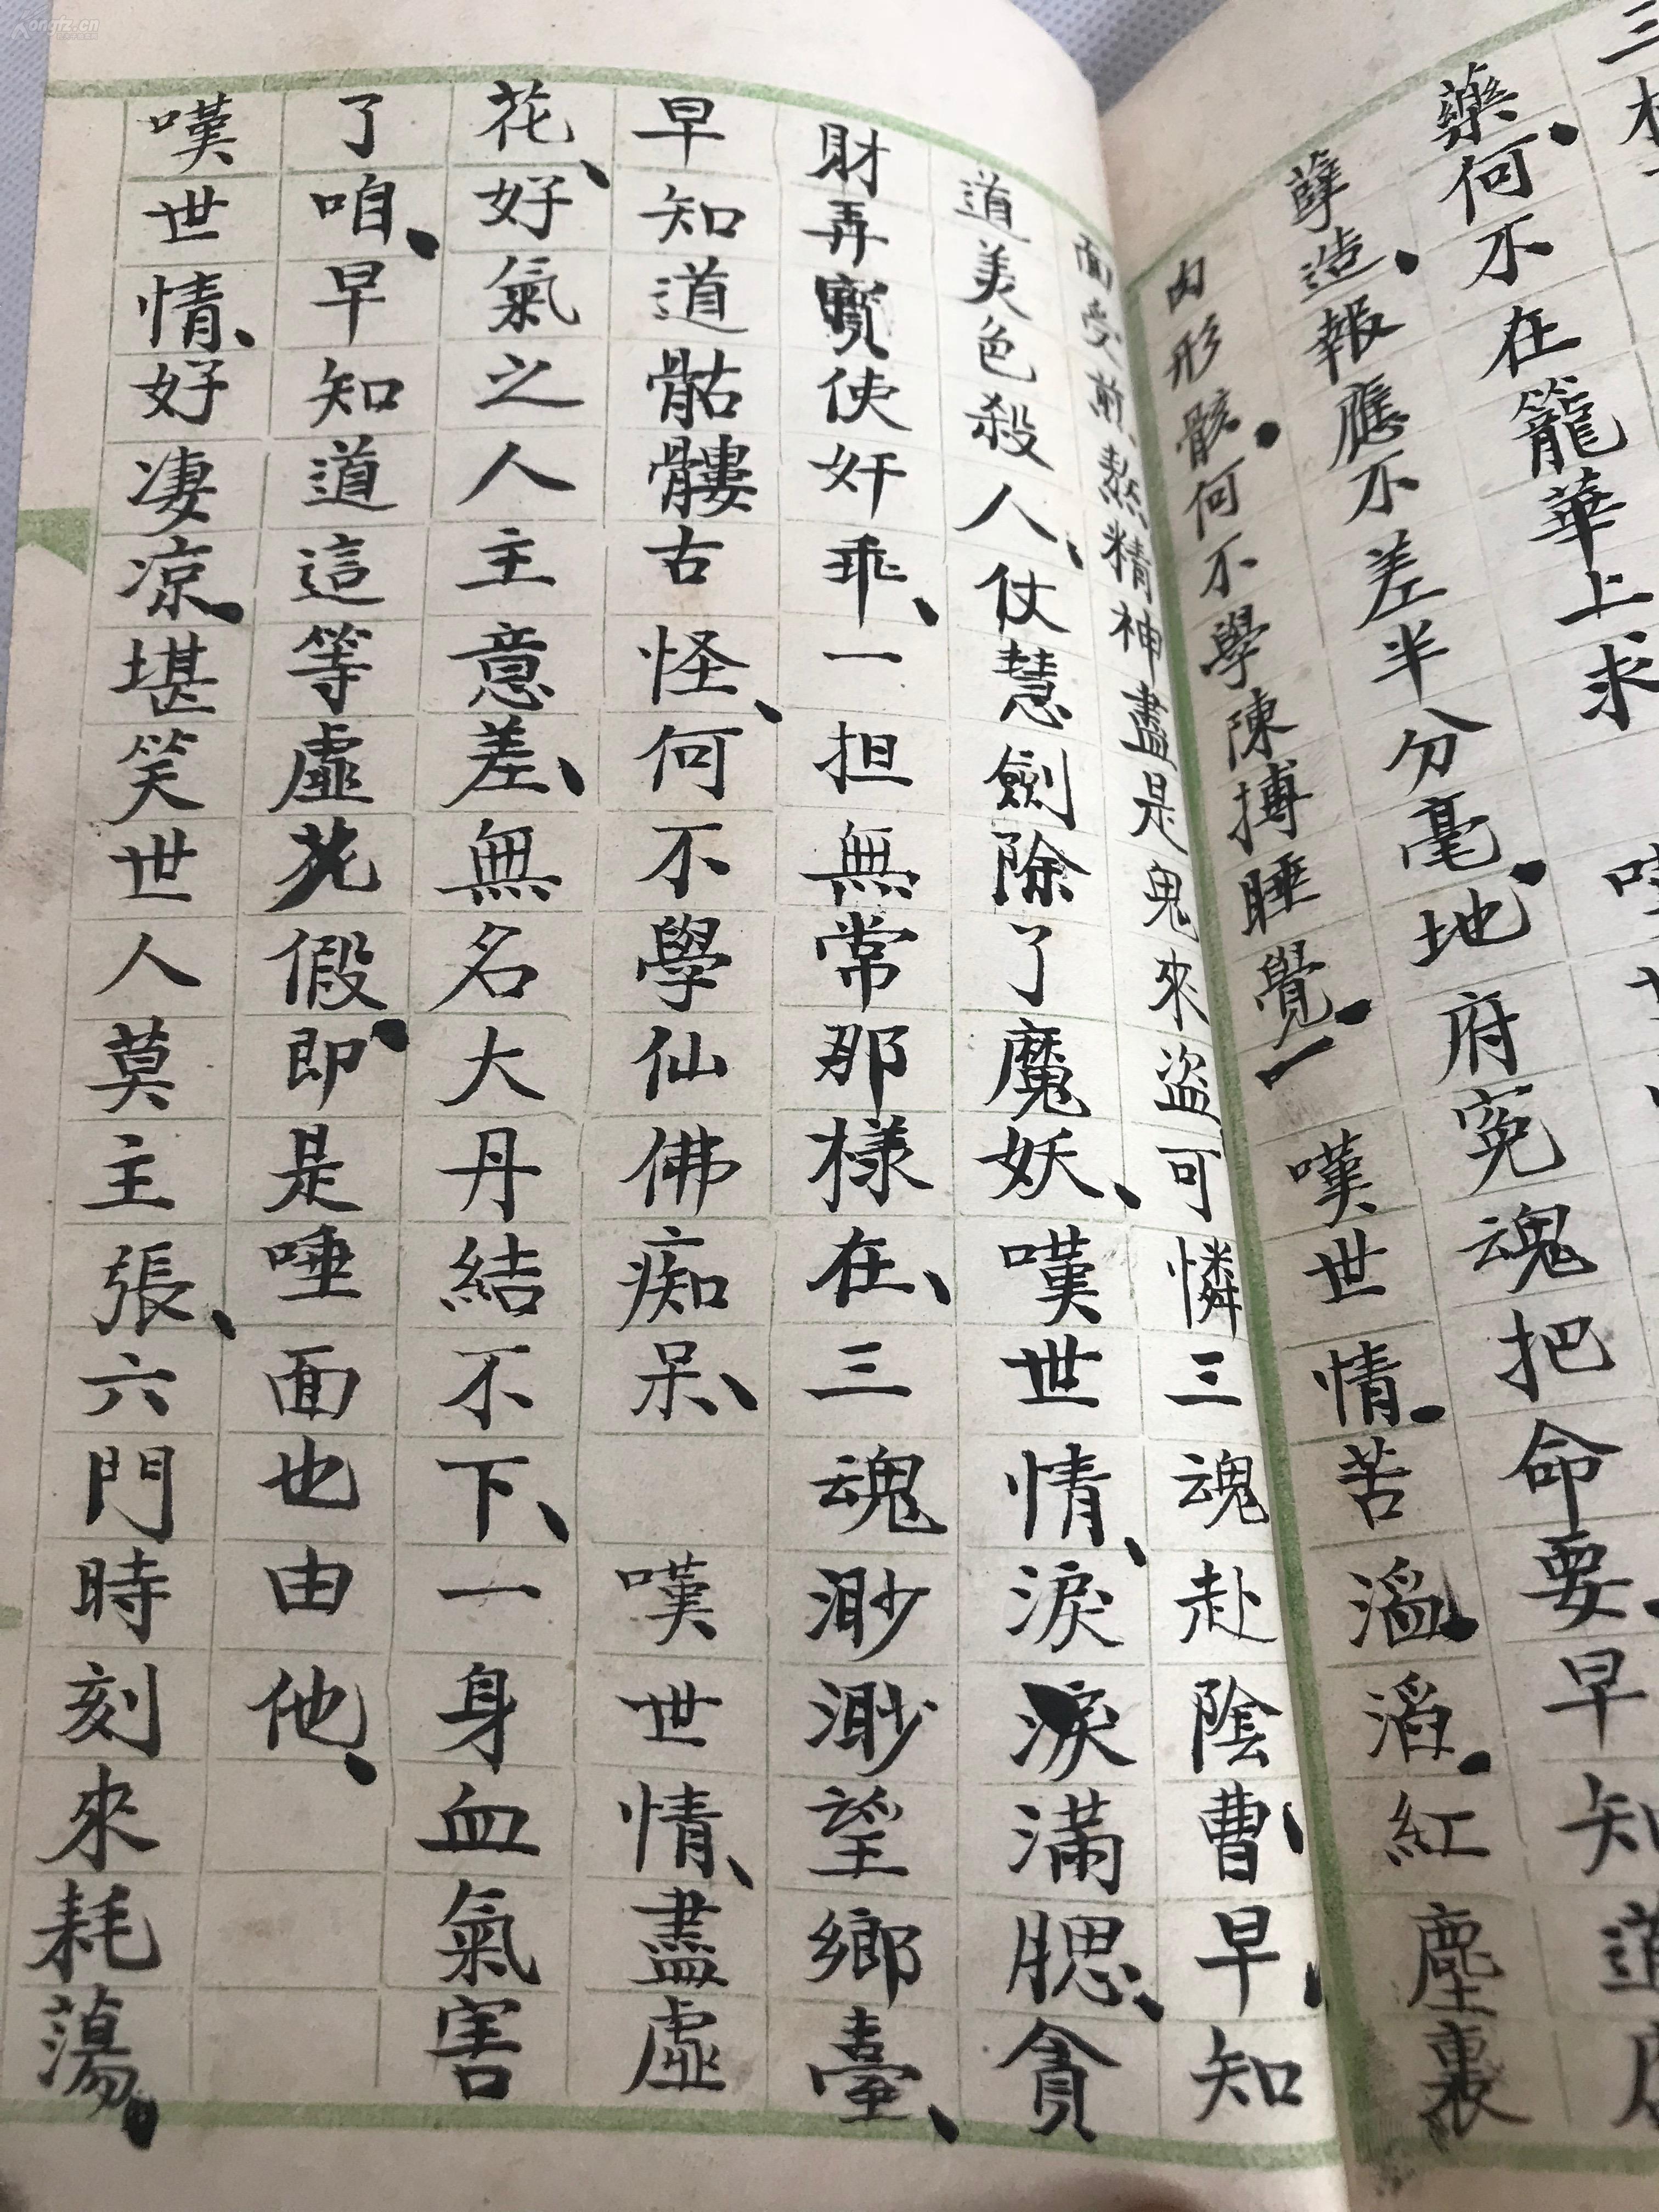 藥何不在籠華上求
孽造報應不差半分毫地府冤魂把命要早知道
肉形骸何不學陳摶睡覺一 嘆世情苦滔滔紅塵裏
面受煎熬精神盡是鬼來盜可憐三魂赴陰曹早知
道美色殺人仗慧劍除了魔妖嘆世情淚淚滿腮貪
財弄寶使奸乖一担無常那樣在三魂渺渺望鄉臺
早知道骷髏古怪何不學仙佛痴呆 嘆世情盡虛
花好氣之人主意差無名大丹結不下一身血氣害
了咱早知道這等虛花假即是唾面也由他
嘆世情好凄凉堪笑世人莫主張六門時刻來耗蕩
ongfz.cn